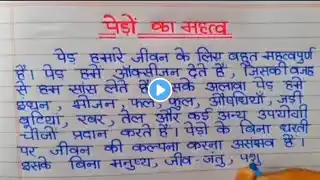 पेड़ों का महत्व
पेड़ हमारे जीवन के लिए बहुत महत्वपूर्ण
हैं। पेड़ हमें ऑक्सीजन देते हैं, जिसकी वजह
से हम सांस लेते हैं। इसके अलावा पेड़ हमें
ईंधन, भोजन, फल, फूल, औषधियाँ, जड़ी
बूटियां, रबर, तेल और कई अन्य उपयोगी
चीजें प्रदान करते हैं। पेड़ों के बिना धरती
पर जीवन की कल्पना करना असंभव है।
इसके बिना मनुष्य, जीव-जंतु, पशु